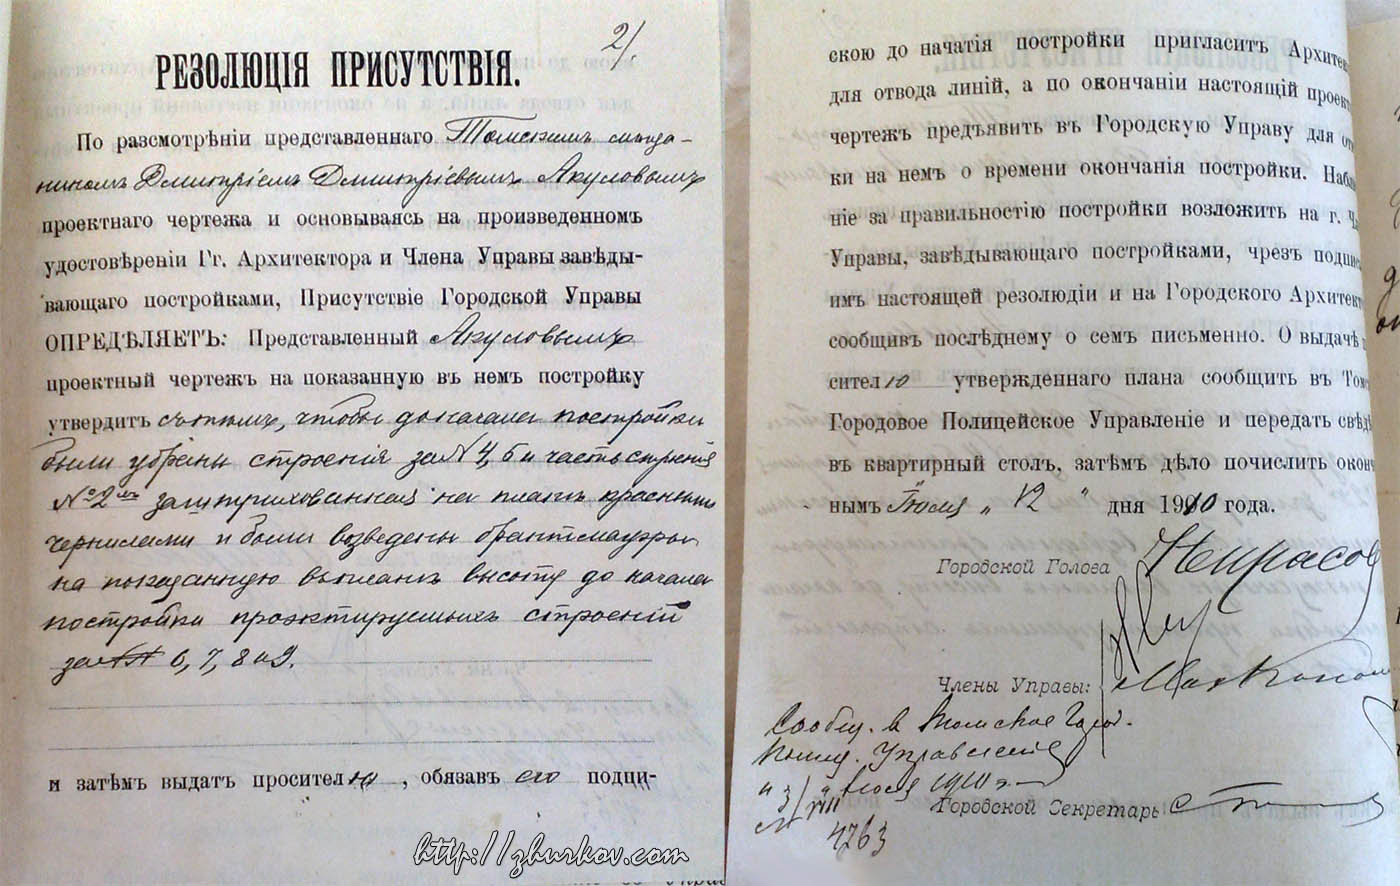 2/.
РЕЗОЛЮЦІЯ ПРИСУТСТВІЯ.
По разсмотрѣніи представленнаго Томскимъ мѣща-
ниномъ Дмитріемъ Дмитріевымъ Акуловымъ
проектнаго чертежа и основываясь на произведенномъ
удостовѣреніи Гг. Архитектора и Члена Управы завѣды-
вающаго постройками, Присутствіе Городской Управы
ОПРЕДѢЛЯЕТЪ: Представленный Акуловымъ
проектный чертежъ на показанную въ немъ постройку
утвердить съ тѣмъ, чтобы до начала постройки
были убраны строенія за №4, 5 и часть строенія
№2мъ заштрихованная на планѣ красными
чернилами и были возведены брантмауэры
на показанную въ планѣ высоту до начала
постройки проэктируемыхъ строеній
за №№ 6, 7, 8 и 9.
и затѣмъ выдать просителю, обязавъ его подпи-
скою до начатія постройки пригласить Архитек
для отвода линій, а по окончаніи настоящій проект
чертежъ предъявить въ Городскую Управу для от
ки на немъ о времени окончанія постройки. Наблю
ніе за правильностію постройки возложить на г. Ч
Управы, завѣдывающаго постройками, чрезъ подпис
имъ настоящей резолюціи и на Городского Архитек
сообщивъ послѣднему о семъ письменно. О выдачѣ п
сителю утвержденнаго плана сообщить въ Томс
Городовое Полицейское Управленіе и передать свѣд
въ квартирный столъ, затѣмъ дѣло почислить оконч
нымъ Іюля „ 12 " дня 1910 года.
Городской Голова Некрасов
Члены Управы:
Сообщ. в Томское Город.
Полиц. Управленіе
1910 г.
Городской Секретарь
№ 4763
http://zhurkov.com